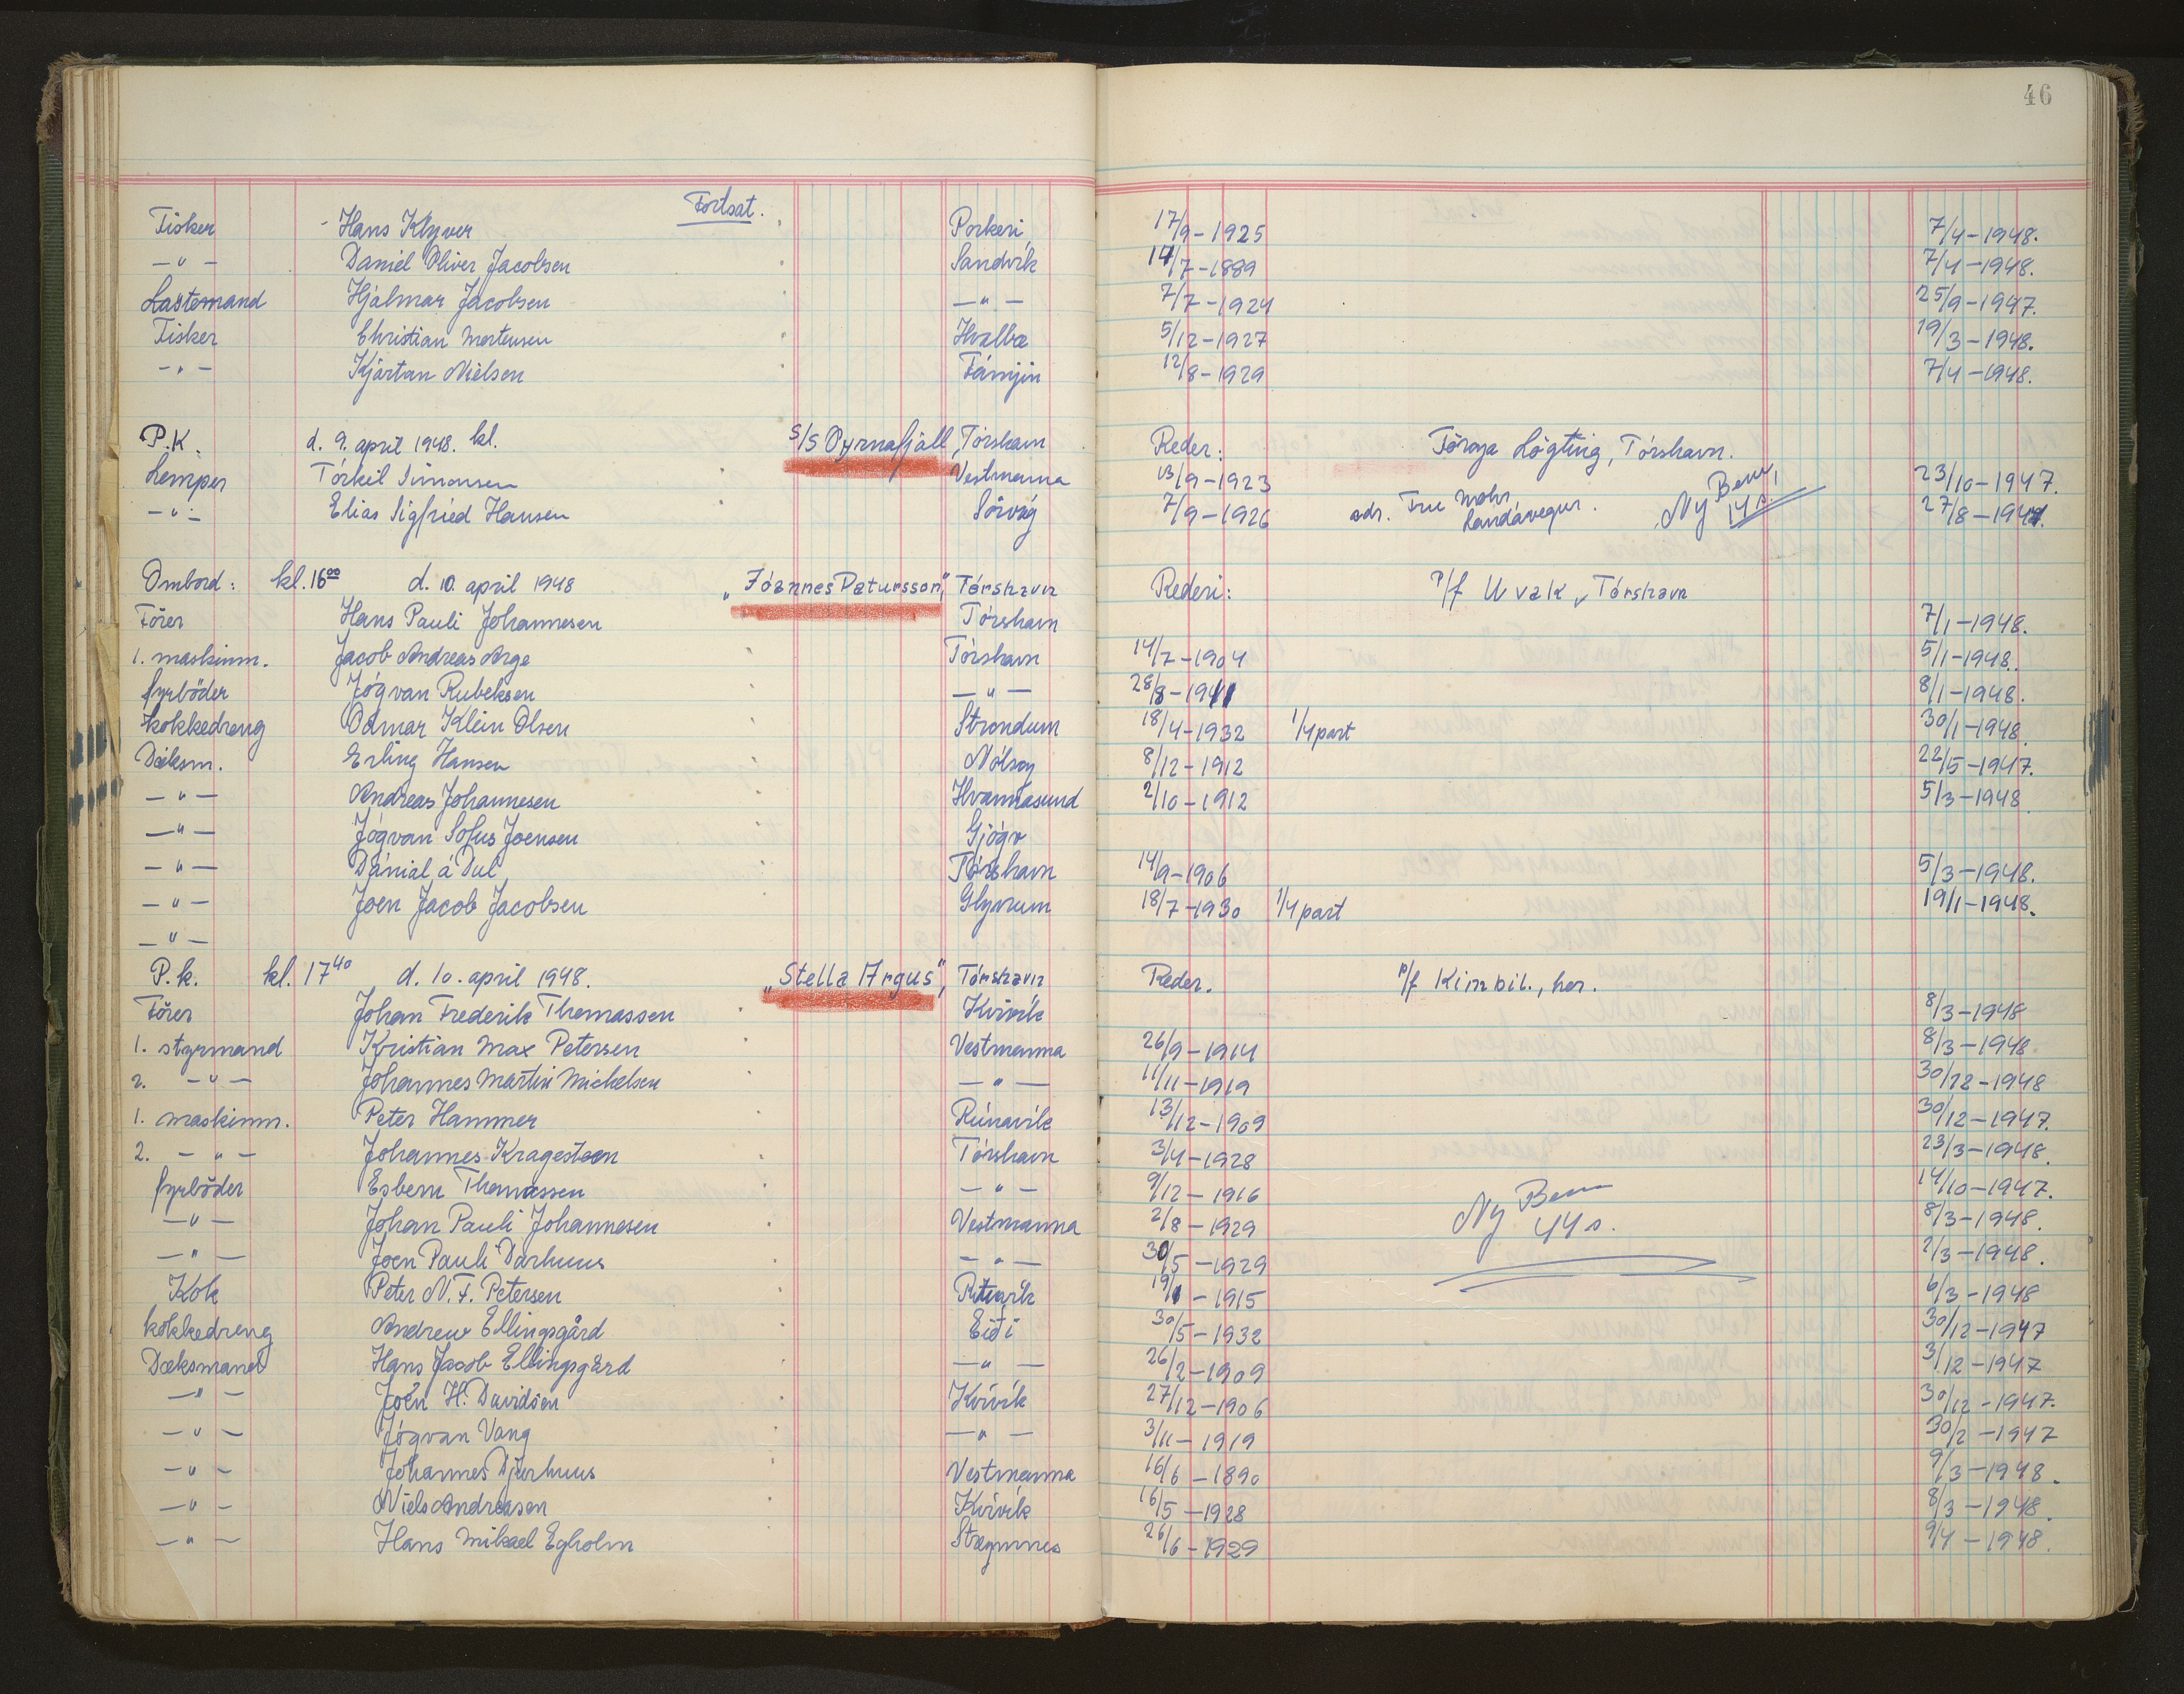 46
Fortsat.
Fisker - Hans Klyver Porkeri 17/9-1925 7/4-1948.
—〃— Daniel Oliver Jacobsen Sandvík 14/7-1889 7/4-1948.
Lastemand Hjálmar Jacobsen —〃— 7/7-1924 25/9-1947.
Fisker Christian Mortensen Hvalba 5/12-1927 19/3-1948.
-〃- Kjártan Nielsen Fámjin 12/8-1929 7/4-1948.
P.K. d. 9. april 1948. kl. S/S Dyrnafjall, Tórshavn Reder: Föroya Lögting, Tórshavn.
Lemper Tórkil Simonsen Vestmanna 13/9-1923 23/10-1947.
-〃- Elias Sigfried Hansen Sörvág 7/9-1926 adr. Fru Mohr, Landávegur. Ny Bem. 14 s. 27/8-1947.
Ombord: kl. 16⁰⁰ d. 10. april 1948 „Jóannes Patursson", Tórshavn Rederi: P/f Uvak, Tórshavn
Förer Hans Pauli Johannesen Tórshavn 7/1-1948.
1. maskinm. Jacob Andreas Arge Tórshavn 14/7-1904 5/1-1948.
fyrböder Jógvan Rubeksen —〃— 28/8-1911 8/1-1948.
kokkedreng Odmar Klein Olsen Strondum 18/4-1932 1/4 part 30/1-1948.
Dæksm. Erling Hansen Nólsoy 8/12-1912 22/5-1947.
—〃— Andreas Johannesen Hvannasund 2/10-1912 5/3-1948
—〃— Jógvan Sofus Joensen Gjógv
—〃— Dánial á Dul Tórshavn 14/9-1906 5/3-1948.
—〃— Joen Jacob Jacobsen Glyvrum 18/7-1930 1/4 part 19/1-1948.
—〃—
P.k. kl. 17⁴⁰ d. 10. april 1948. „Stella Argus", Tórshavn Reder. P/f Kimbil., her.
Förer Johan Frederik Thomassen Kvívík 8/3-1948
1. styrmand Kristian Max Petersen Vestmanna 26/9-1914 8/3-1948.
2. —〃— Johannes Martin Michelsen —〃— 11/11-1919 30/12-1948
1. maskinm. Peter Hammer Rúnavík 13/12-1909 30/12-1947.
2. —〃— Johannes Kragesteen Tórshavn 3/4-1928 23/3-1948.
fyrböder Esbern Thomassen —〃— 9/12-1916 Ny Bem 44 s. 14/10-1947.
—〃— Johan Pauli Johannesen Vestmanna 2/8-1929 8/3-1948.
—〃— Joen Pauli Durhuus —〃— 30/5-1929 2/3-1948.
Kok Peter N. F. Petersen Rituvík 19/1-1915 6/3-1948
kokkedreng Andrew Ellingsgård Eidi 30/5-1932 30/12-1947
Dæksmand Hans Jacob Ellingsgård —〃— 26/2-1909 3/12-1947
—〃— Joen H. Davidsen Kvívík 27/12-1906 30/12-1947.
—〃— Jógvan Vang —〃— 3/11-1919 30/2-1947
—〃— Johannes Djurhuus Vestmanna 16/6-1890 9/3-1948.
—〃— Niels Andreasen Kvívík 16/5-1928 8/3-1948.
—〃— Hans Mikael Egholm Stregmnes 26/6-1929 9/4-1948.